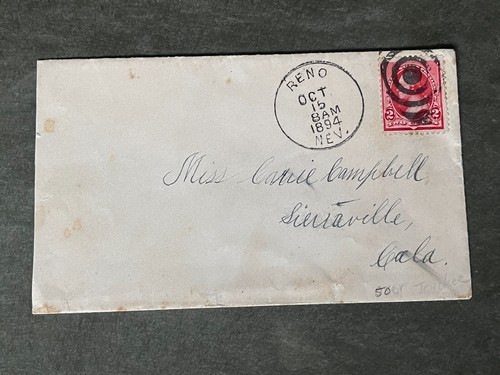 RENO
OCT
15
8AM
1894
NEV.
2 2
Miss Carrie Campbell,
Sierraville,
Cala.